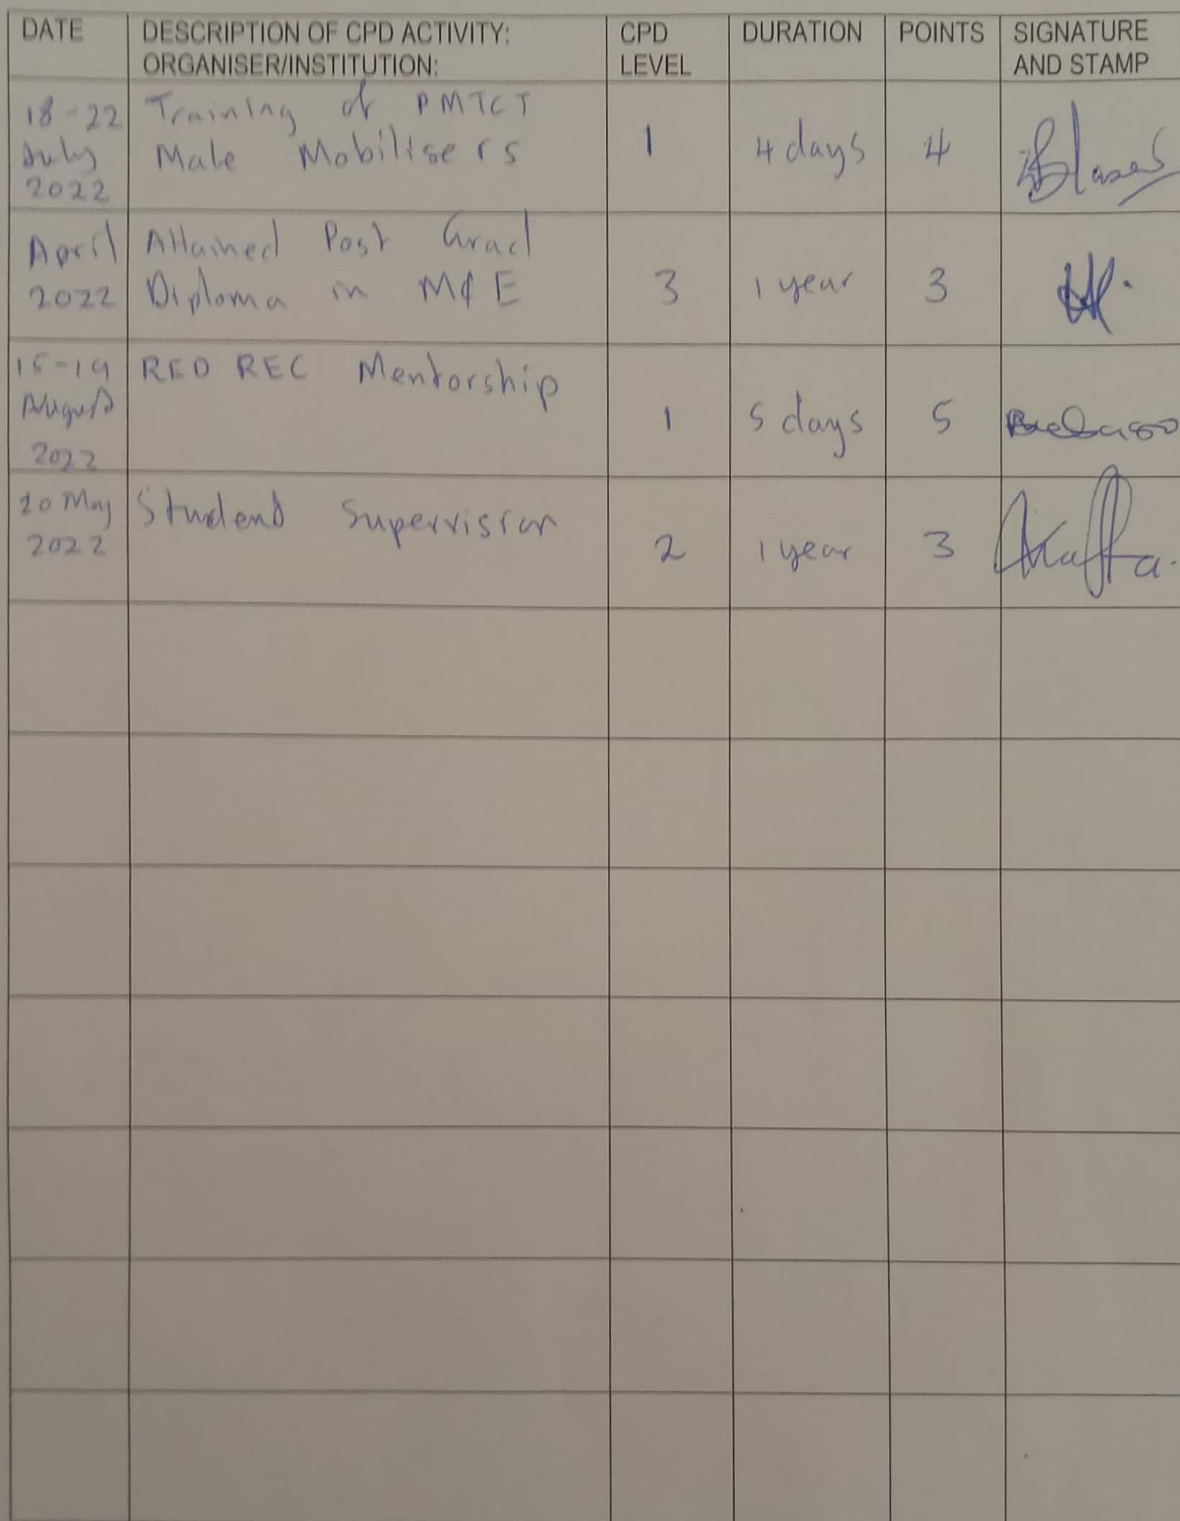 DATE
DESCRIPTION OF CPD ACTIVITY:
ORGANISER/INSTITUTION:
CPD
LEVEL
DURATION
POINTS
SIGNATURE
AND STAMP
18-22
July
2022
Training of PMTCT
Male Mobilisers
1
4 days
4
April
2022
Attained Post Grad
Diploma in M&E
3
1 year
3
15-19
August
2022
RED REC Mentorship
1
5 days
5
20 May
2022
Student Supervision
2
1 year
3